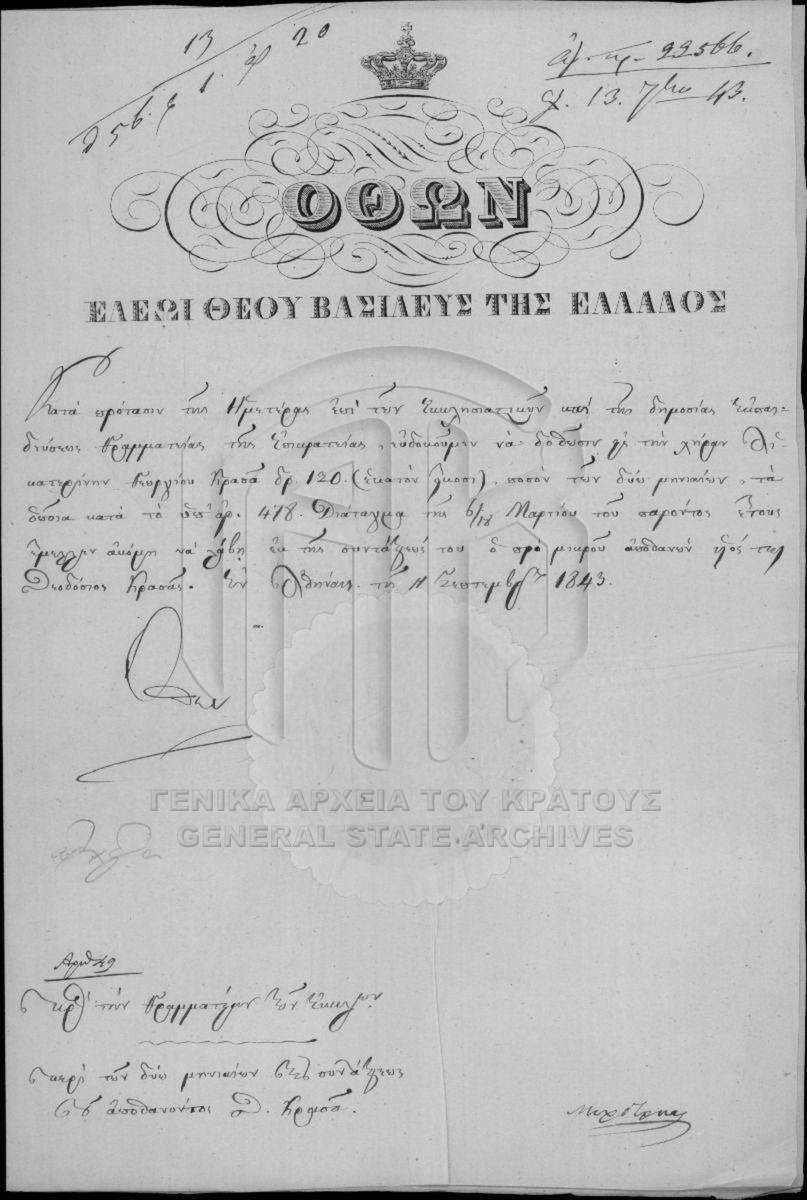 13 20
αρ. πρ. 22566.
13. 7βρίου 43.
ΟΘΩΝ
ΕΛΕΩΙ ΘΕΟΥ ΒΑΣΙΛΕΥΣ ΤΗΣ ΕΛΛΑΔΟΣ
Κατὰ πρότασιν τῆς Ἡμετέρας ἐπὶ τῶν Ἐκκλησιαστικῶν καὶ τῆς δημοσίας Ἐκπαι-
δεύσεως Γραμματείας τῆς Ἐπικρατείας, εὐδοκοῦμεν νὰ δοθῶσιν εἰς τὴν χήραν Αἰ-
κατερίνην Γεωργίου Κρασᾶ δρ. 120. (ἑκατὸν εἴκοσι), ποσὸν τῶν δύω μηνιαίων, τὰ
ὁποῖα κατὰ τὸ ὑπ' ἀρ. 478. Διάταγμα τῆς 6/18 Μαρτίου τοῦ παρόντος ἔτους
ἔμελλεν ἀκόμη νὰ λάβῃ ἐκ τῆς συντάξεώς του ὁ πρὸ μικροῦ ἀποθανὼν υἱός της
Θεοδόσιος Κρασᾶς. Ἐν Ἀθήναις τῇ 11 Σεπτεμβρ. 1843.
Όθων
ΓΕΝΙΚΑ ΑΡΧΕΙΑ ΤΟΥ ΚΡΑΤΟΥΣ
GENERAL STATE ARCHIVES
Αριθ 49
τὴν Γραμματείαν τῶν Ἐκκλ.
περὶ τῶν δύω μηνιαίων τῆς συντάξεως
τοῦ ἀποθανόντος Θ. Κρασᾶ.